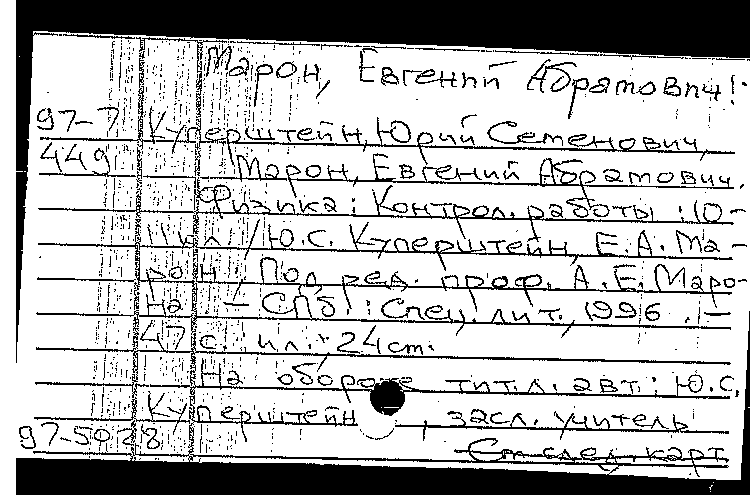 Марон, Евгений Абрамович!
97-7 Куперштейн, Юрий Семенович,
449 Марон, Евгений Абрамович.
Физика: Контрол. работы : 10-
11 кл. / Ю.С. Куперштейн, Е.А. Ма-
рон, Под ред. проф. А.Е. Маро-
на. – СПб.: Спец. лит., 1996. –
47 с.: ил.; 24 cm.
На обороте тит.л. авт.: Ю.С.
Куперштейн, засл. учитель
97-5028 См. след. карт.